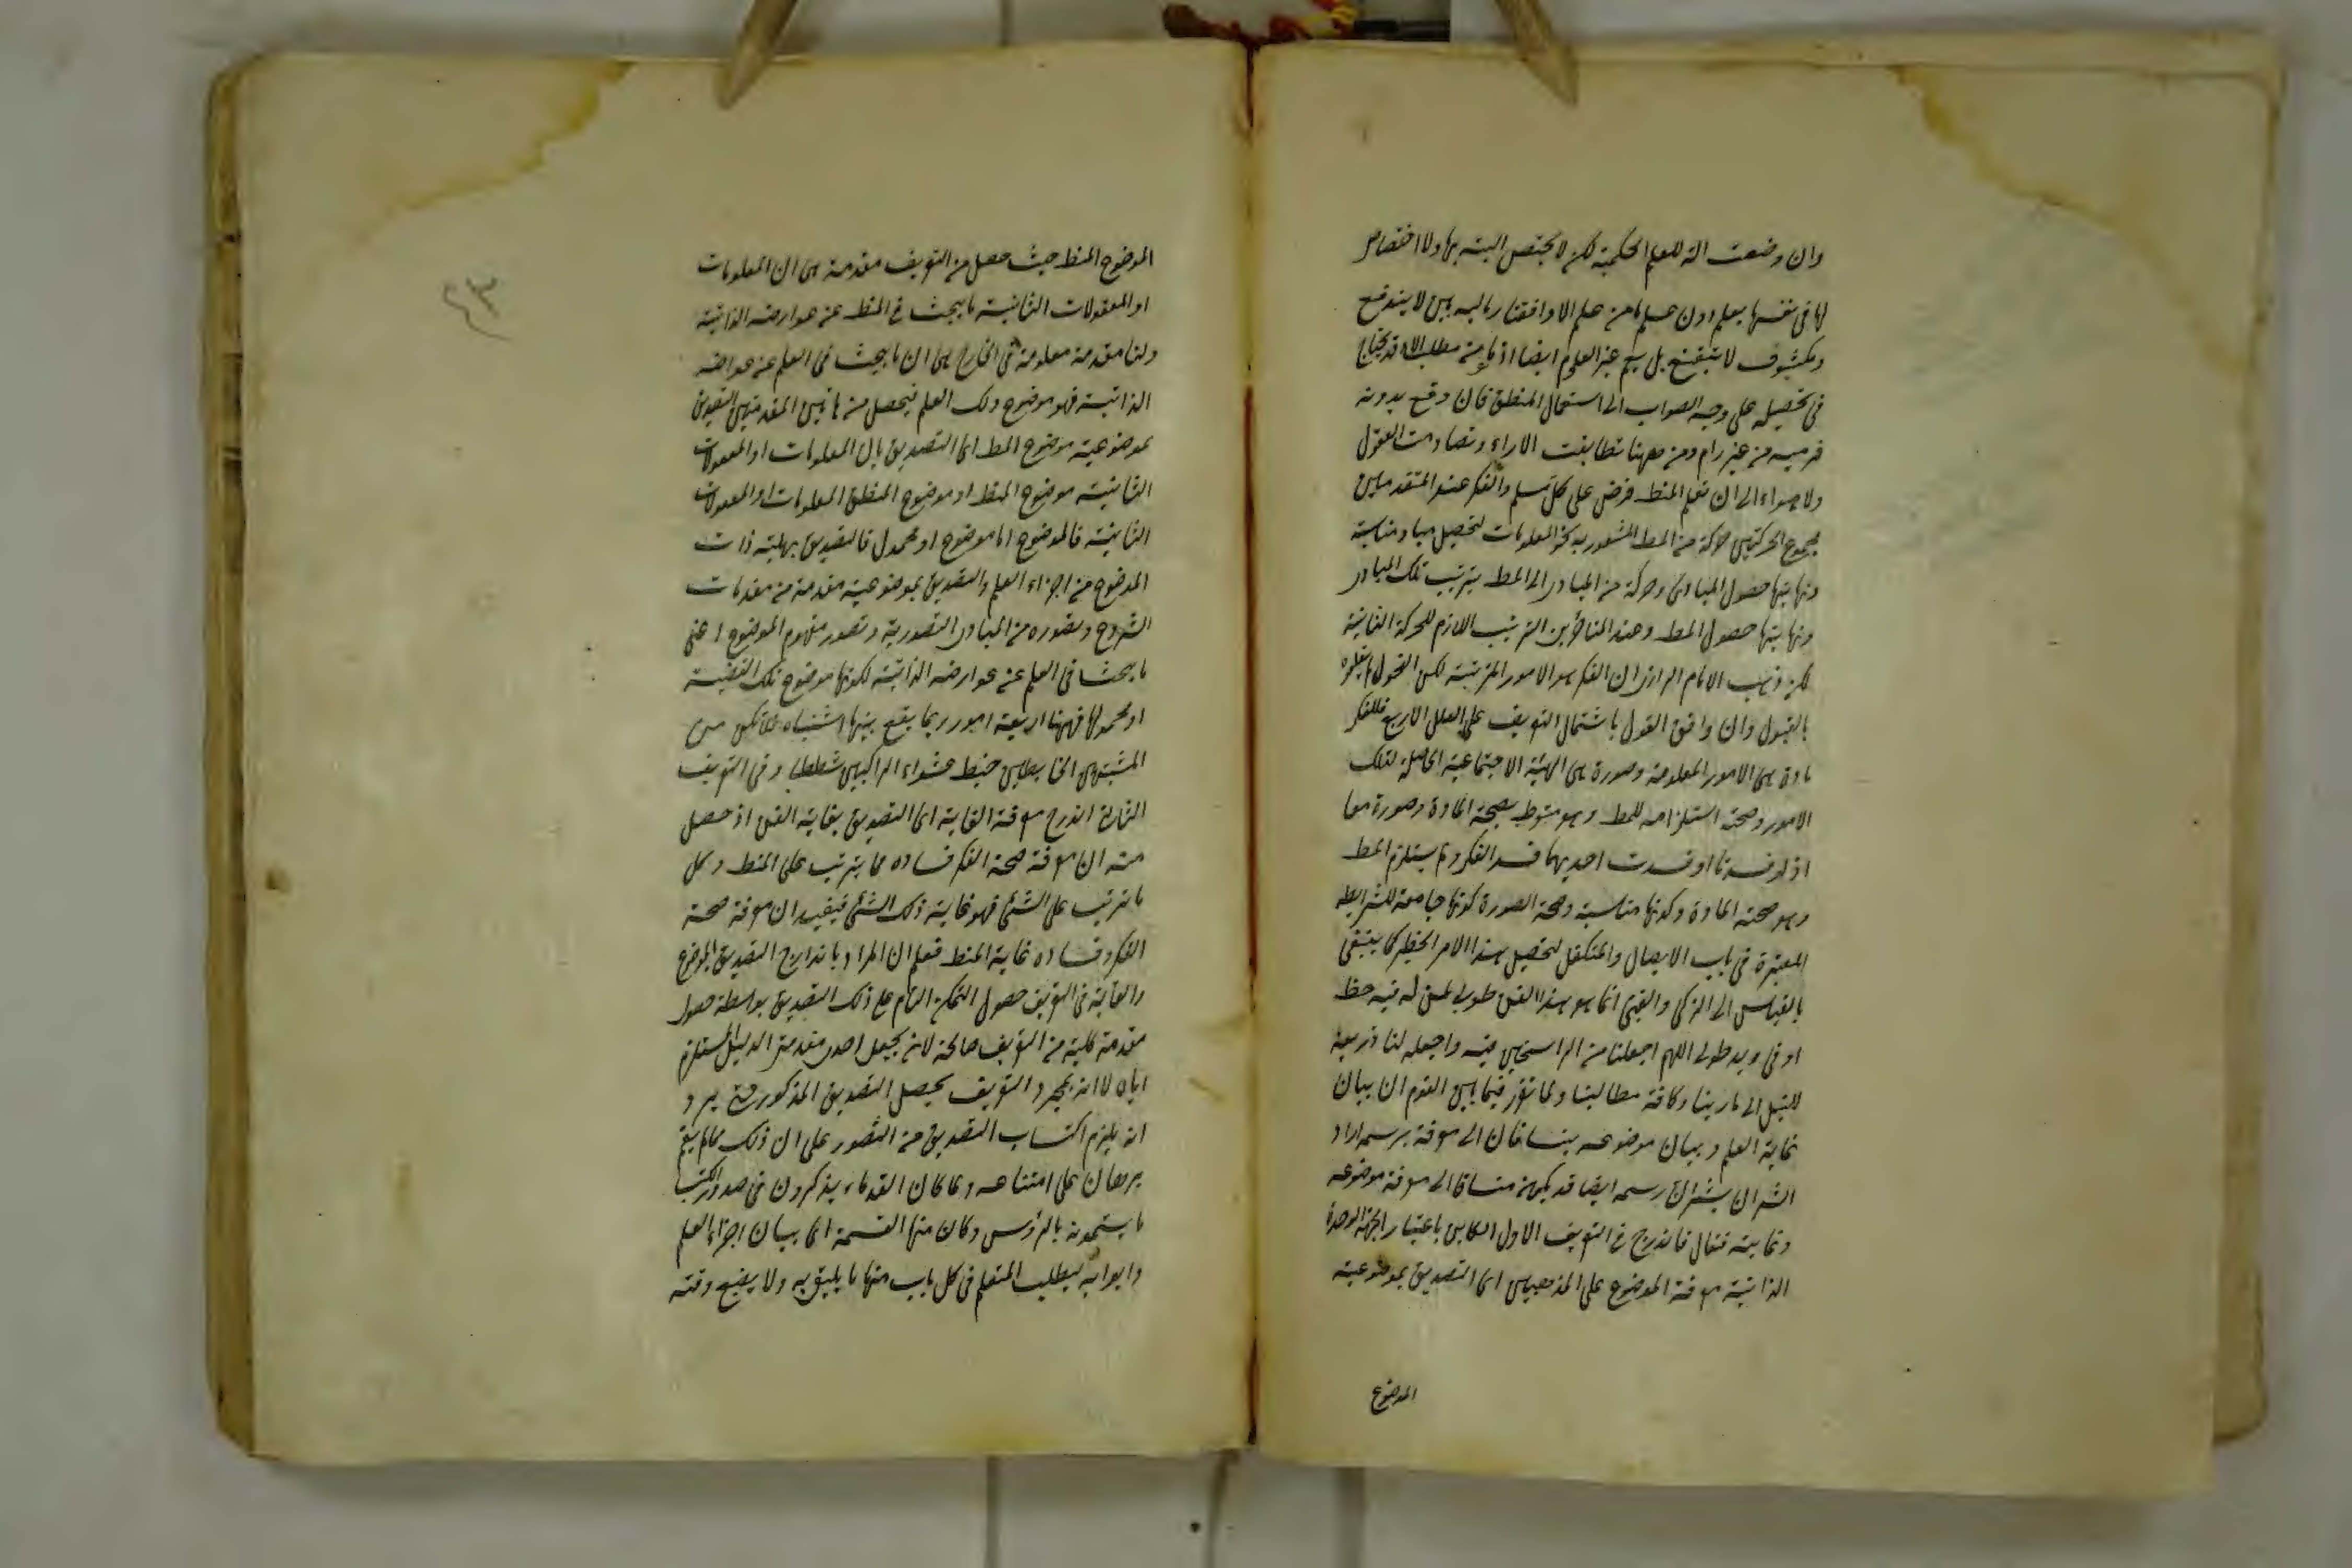 وان وضعت الة للعلم الحكمية لكن لا يختص البتة بها ولا اختصاص
لها فى نفسها بعلم دون علم من علم الا وافتقاره اليه بين لا يندفع
ومكشوف لا يتقنع بل يعم غير العلوم ايضا اذ ما من مطلب الا قد يحتاج
فى تحصيله على وجه الصواب الى استعمال المنطق فان وقع بدونه
فرمية من غير رام ومن ههنا تطابقت الاراء وتصادمت العقول
ولا سواء الى ان تعلم المنط فرض على كل مسلم والفكر عند المتقدمين
مجموع الحركتين حركة من المط المشعور به نحو المعلومات لتحصيل مباد مناسبة
ونهايتها حصول المبادى وحركة من المبادى الى المط بترتيب تلك المبادى
ونهايتها حصول المط وعند المتاخرين الترتيب اللازم للحركة الثانية
لكن ذهب الامام الرازى ان الفكر هو الامور المرتبة لكن الفحول لم يتلقوه
بالقبول وان وافق القول باشتمال التعريف على العلل الاربع فللفكر
مادة هى الامور المعلومة وصورة هى الهيئة الاجتماعية الحاصلة لتلك
الامور وصحته استلزامه للمط وهو منوط بصحة المادة وصورة معا
اذ لو فسدتا او فسدت احديهما فسد الفكر ولم يستلزم المط
وهو صحة المادة وكونها مناسبة وصحة الصورة كونها جامعة للشرايط
المعتبرة فى باب الايصال والمتكفل لتحصيل هذا الامر الخطير كما ينبغى
بالقياس الى الزكى والغبى انما هو هذا الفن طوبى لمن له فيه حظ
او فى يد طولى اللهم اجعلنا من الراسخين فيه واجعله لنا ذريعة
للنيل الى ماربنا وكافة مطالبنا ولما تقرر فيما بين القوم ان بيان
غاية العلم وبيان موضوعه ينساقان الى معرفة برسمه اراد
الشه ان يشير ان رسمه ايضا قد يكون منساقا الى معرفة موضوعه
وغايته فقال فاندرج فى التعريف الاول الكائن باعتبار الجهة الوحدة
الذاتية معرفة الموضوع على المذهبين اى التصديق بموضوعية
الموضوع
٤٣
الموضوع المنط حيث حصل من التعريف مقدمة هى ان المعلومات
او المعقولات الثانية ما يبحث فى المنط عن عوارضه الذاتية
ولنا مقدمة معلومة فى الخارج هى ان ما يبحث فى العلم عن عوارضه
الذاتية فهو موضوع ذلك العلم فيحصل من هاتين المقدمتين التصديق
بموضوعية موضوع المط اى التصديق بان المعلومات او المعقولات
الثانية موضوع المنط او موضوع المنطق المعلومات او المعقولات
الثانية فالموضوع اما موضوع او محمول فالتصديق بهلية ذات
الموضوع من اجزاء العلم والتصديق بموضوعية مقدمة من مقدمات
الشروع وتصوره من المبادى التصورية وتصور مفهوم الموضوع اعنى
ما يبحث فى العلم عن عوارضه الذاتية لكونها موضوع تلك القضية
او محمولها فههنا اربعة امور ربما يقع بينها اشتباه فلا تكن من
المشتبهين الخابطين خبط عشواء الراكبين شططا وفى التعريف
الثانى اندرج معرفة الغاية اى التصديق بغاية الفن اذ حصل
منه ان معرفة صحة الفكر فساده مما يترتب على المنط وكل
ما يترتب على الشئ فهو غاية ذلك الشئ فيفيد ان معرفة صحة
الفكر وفساده غاية المنط فعلم ان المراد باندراج التصديق بالموضوع
والغاية فى التعريف حصول التمكن التام على ذلك التصديق بواسطة حصول
مقدمة كلية من التعريف صالحة لان يجعل احدى مقدمتى الدليل المستلزم
اياه لا انه بمجرد التعريف يحصل التصديق المذكور حتى يرد
انه يلزم اكتساب التصديق من التصور على ان ذلك مما لم يقم
برهان على امتناعه وما كان القدماء يذكرون فى صدور الكتب
ما يسمونه بالرؤس وكان منها القسمة اى بيان اجزاء العلم
وابوابه ليطلب المتعلم فى كل باب منها ما يليق به ولا يضيع وقته